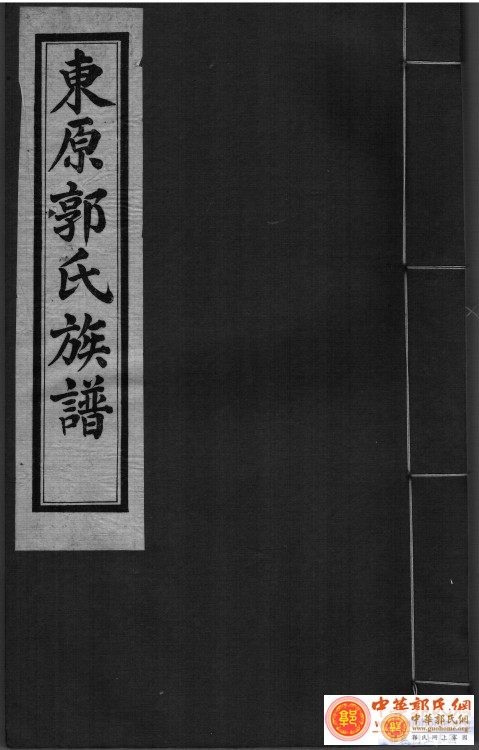 東原郭氏族譜
中華郭氏網
www.guohome.org
郭氏網上家園